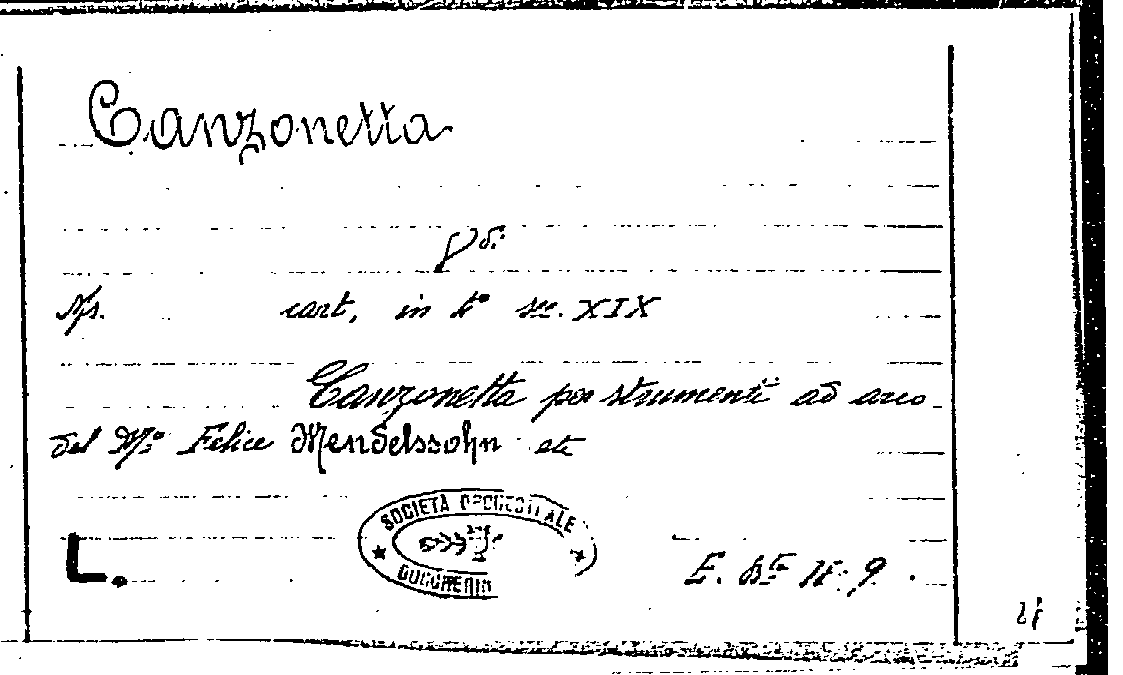 Canzonetta
Vd.
Ms. cart, in 4° sec. XIX
Canzonetta per strumenti ad arco
del M.° Felice Mendelssohn etc
SOCIETÀ ORCHESTRALE
L.
E. N: 9